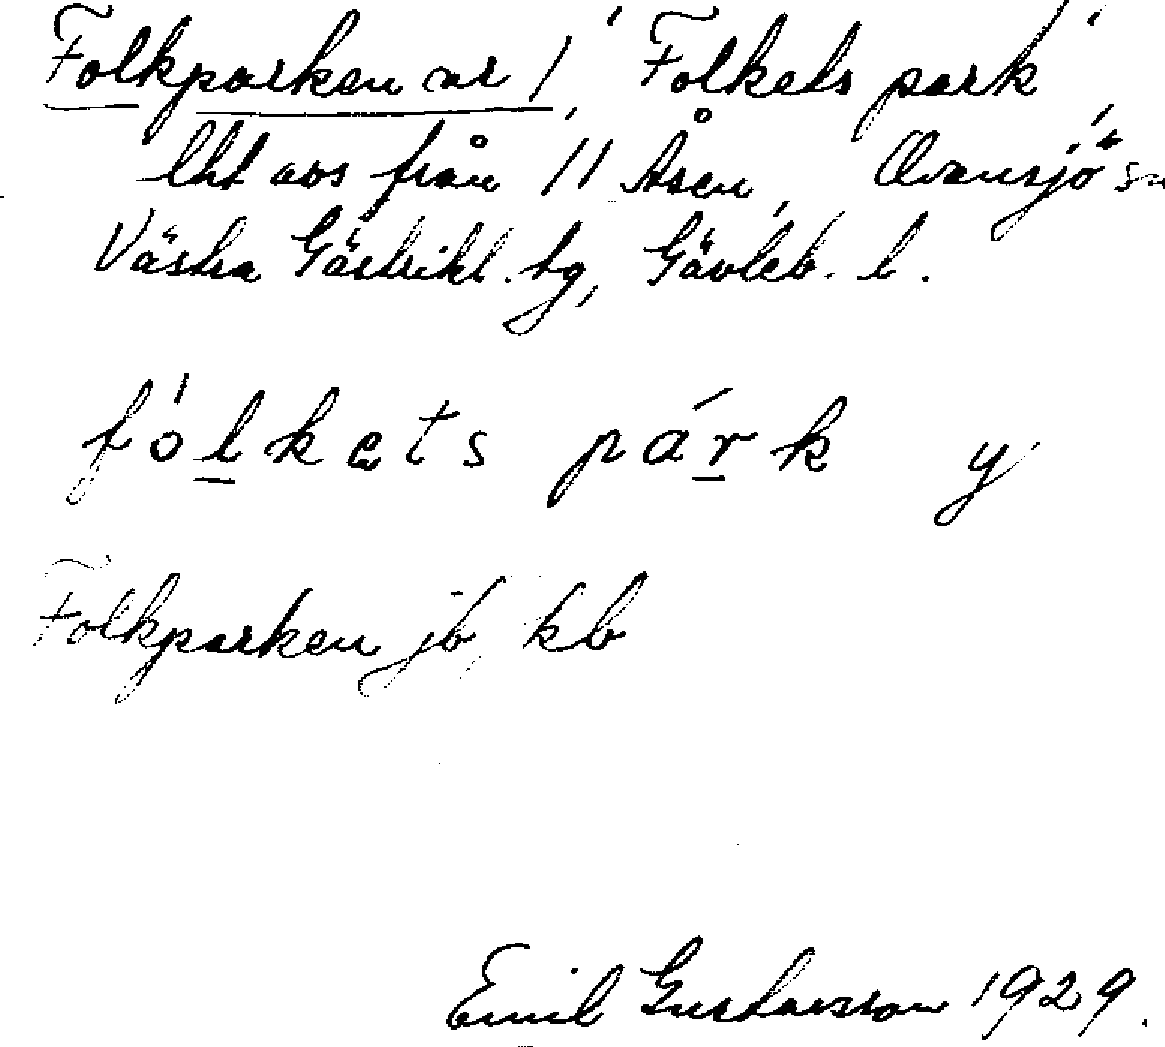 Folkparken nr 1, 'Folkets park',
lht avs från 11 Åsen, Ovansjö sn
Västra Gästrikl. tg, Gävleb. l.
fólkets párk y
Folkparken jb, kb
Emil Gustavsson 1929.